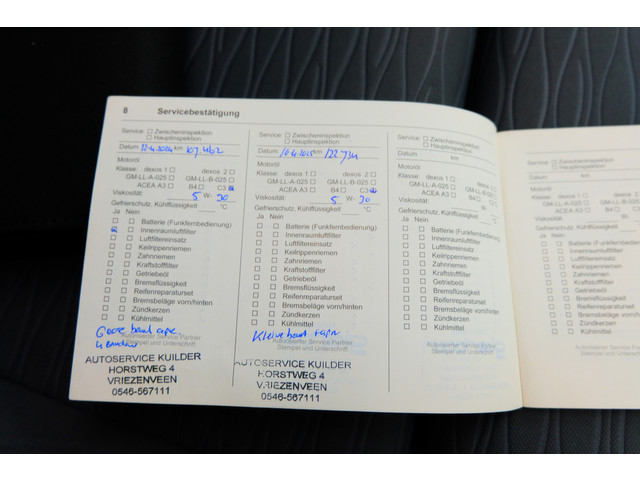 8 Servicebestätigung
Service: Zwischeninspektion
Hauptinspektion
Datum km 107.462
Motoröl
Klasse: dexos 1 dexos 2
GM-LL-A-025 GM-LL-B-025
ACEA A3 B4 C3
Viskosität: 5 W- 30
Gefrierschutz, Kühlflüssigkeit °C
Ja Nein
Batterie (Funkfernbedienung)
Innenraumluftfilter
Luftfiltereinsatz
Keilrippenriemen
Zahnriemen
Kraftstofffilter
Getriebeöl
Bremsflüssigkeit
Reifenreparaturset
Bremsbeläge vorn/hinten
Zündkerzen
Kühlmittel
Autorisierter Service Partner
Stempel und Unterschrift
AUTOSERVICE KUILDER
HORSTWEG 4
VRIEZENVEEN
0546-567111
Service: Zwischeninspektion
Hauptinspektion
Datum km
Motoröl
Klasse: dexos 1 dexos 2
GM-LL-A-025 GM-LL-B-025
ACEA A3 B4 C3
Viskosität: 5 W- 30
Gefrierschutz, Kühlflüssigkeit °C
Ja Nein
Batterie (Funkfernbedienung)
Innenraumluftfilter
Luftfiltereinsatz
Keilrippenriemen
Zahnriemen
Kraftstofffilter
Getriebeöl
Bremsflüssigkeit
Reifenreparaturset
Bremsbeläge vorn/hinten
Zündkerzen
Kühlmittel
Kleine beurt
Autorisierter Service Partner
Stempel und Unterschrift
AUTOSERVICE KUILDER
HORSTWEG 4
VRIEZENVEEN
0546-567111
Service: Zwischeninspektion
Hauptinspektion
Datum km
Motoröl
Klasse: dexos 1 dexos 2
GM-LL-A-025 GM-LL-B-025
ACEA A3 B4 C3
Viskosität: W-
Gefrierschutz, Kühlflüssigkeit °C
Ja Nein
Batterie (Funkfernbedienung)
Innenraumluftfilter
Luftfiltereinsatz
Keilrippenriemen
Zahnriemen
Kraftstofffilter
Getriebeöl
Bremsflüssigkeit
Reifenreparaturset
Bremsbeläge vorn/hinten
Zündkerzen
Kühlmittel
Autorisierter Service Partner
Stempel und Unterschrift
Service: Zwischeninspektion
Hauptinspektion
Datum km
Motoröl
Klasse: dexos 1
GM-LL-A-025
ACEA A3 B4
Viskosität:
Gefrierschutz, Kühlflüssigkeit
Ja Nein
Batterie (Funkfernbedienung)
Innenraumluftfilter
Luftfiltereinsatz
Keilrippenriemen
Zahnriemen
Kraftstofffilter
Getriebeöl
Bremsflüssigkeit
Reifenreparaturset
Bremsbeläge vorn/hinten
Zündkerzen
Kühlmittel
Autorisierter Service Partner
Stempel und Unterschrift